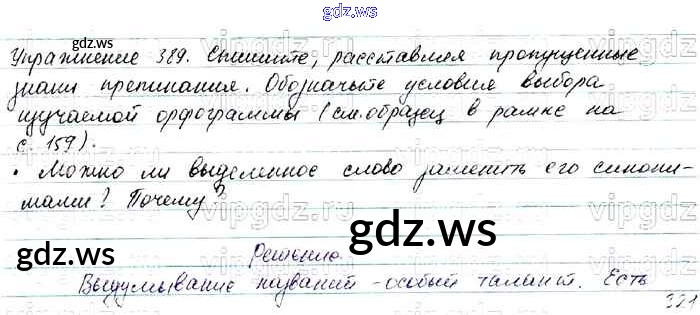 gdz.ws
Упражнение 389. Спишите, расставляя пропущенные
знаки препинания. Обозначьте условия выбора
изучаемой орфограммы (см. образец в рамке на
с. 159).
• Можно ли выделенное слово заменить его синони-
мами? Почему?
gdz.ws
gdz.ws
gdz.ws
Решение
Выдумывание названий - особый талант. Есть
321